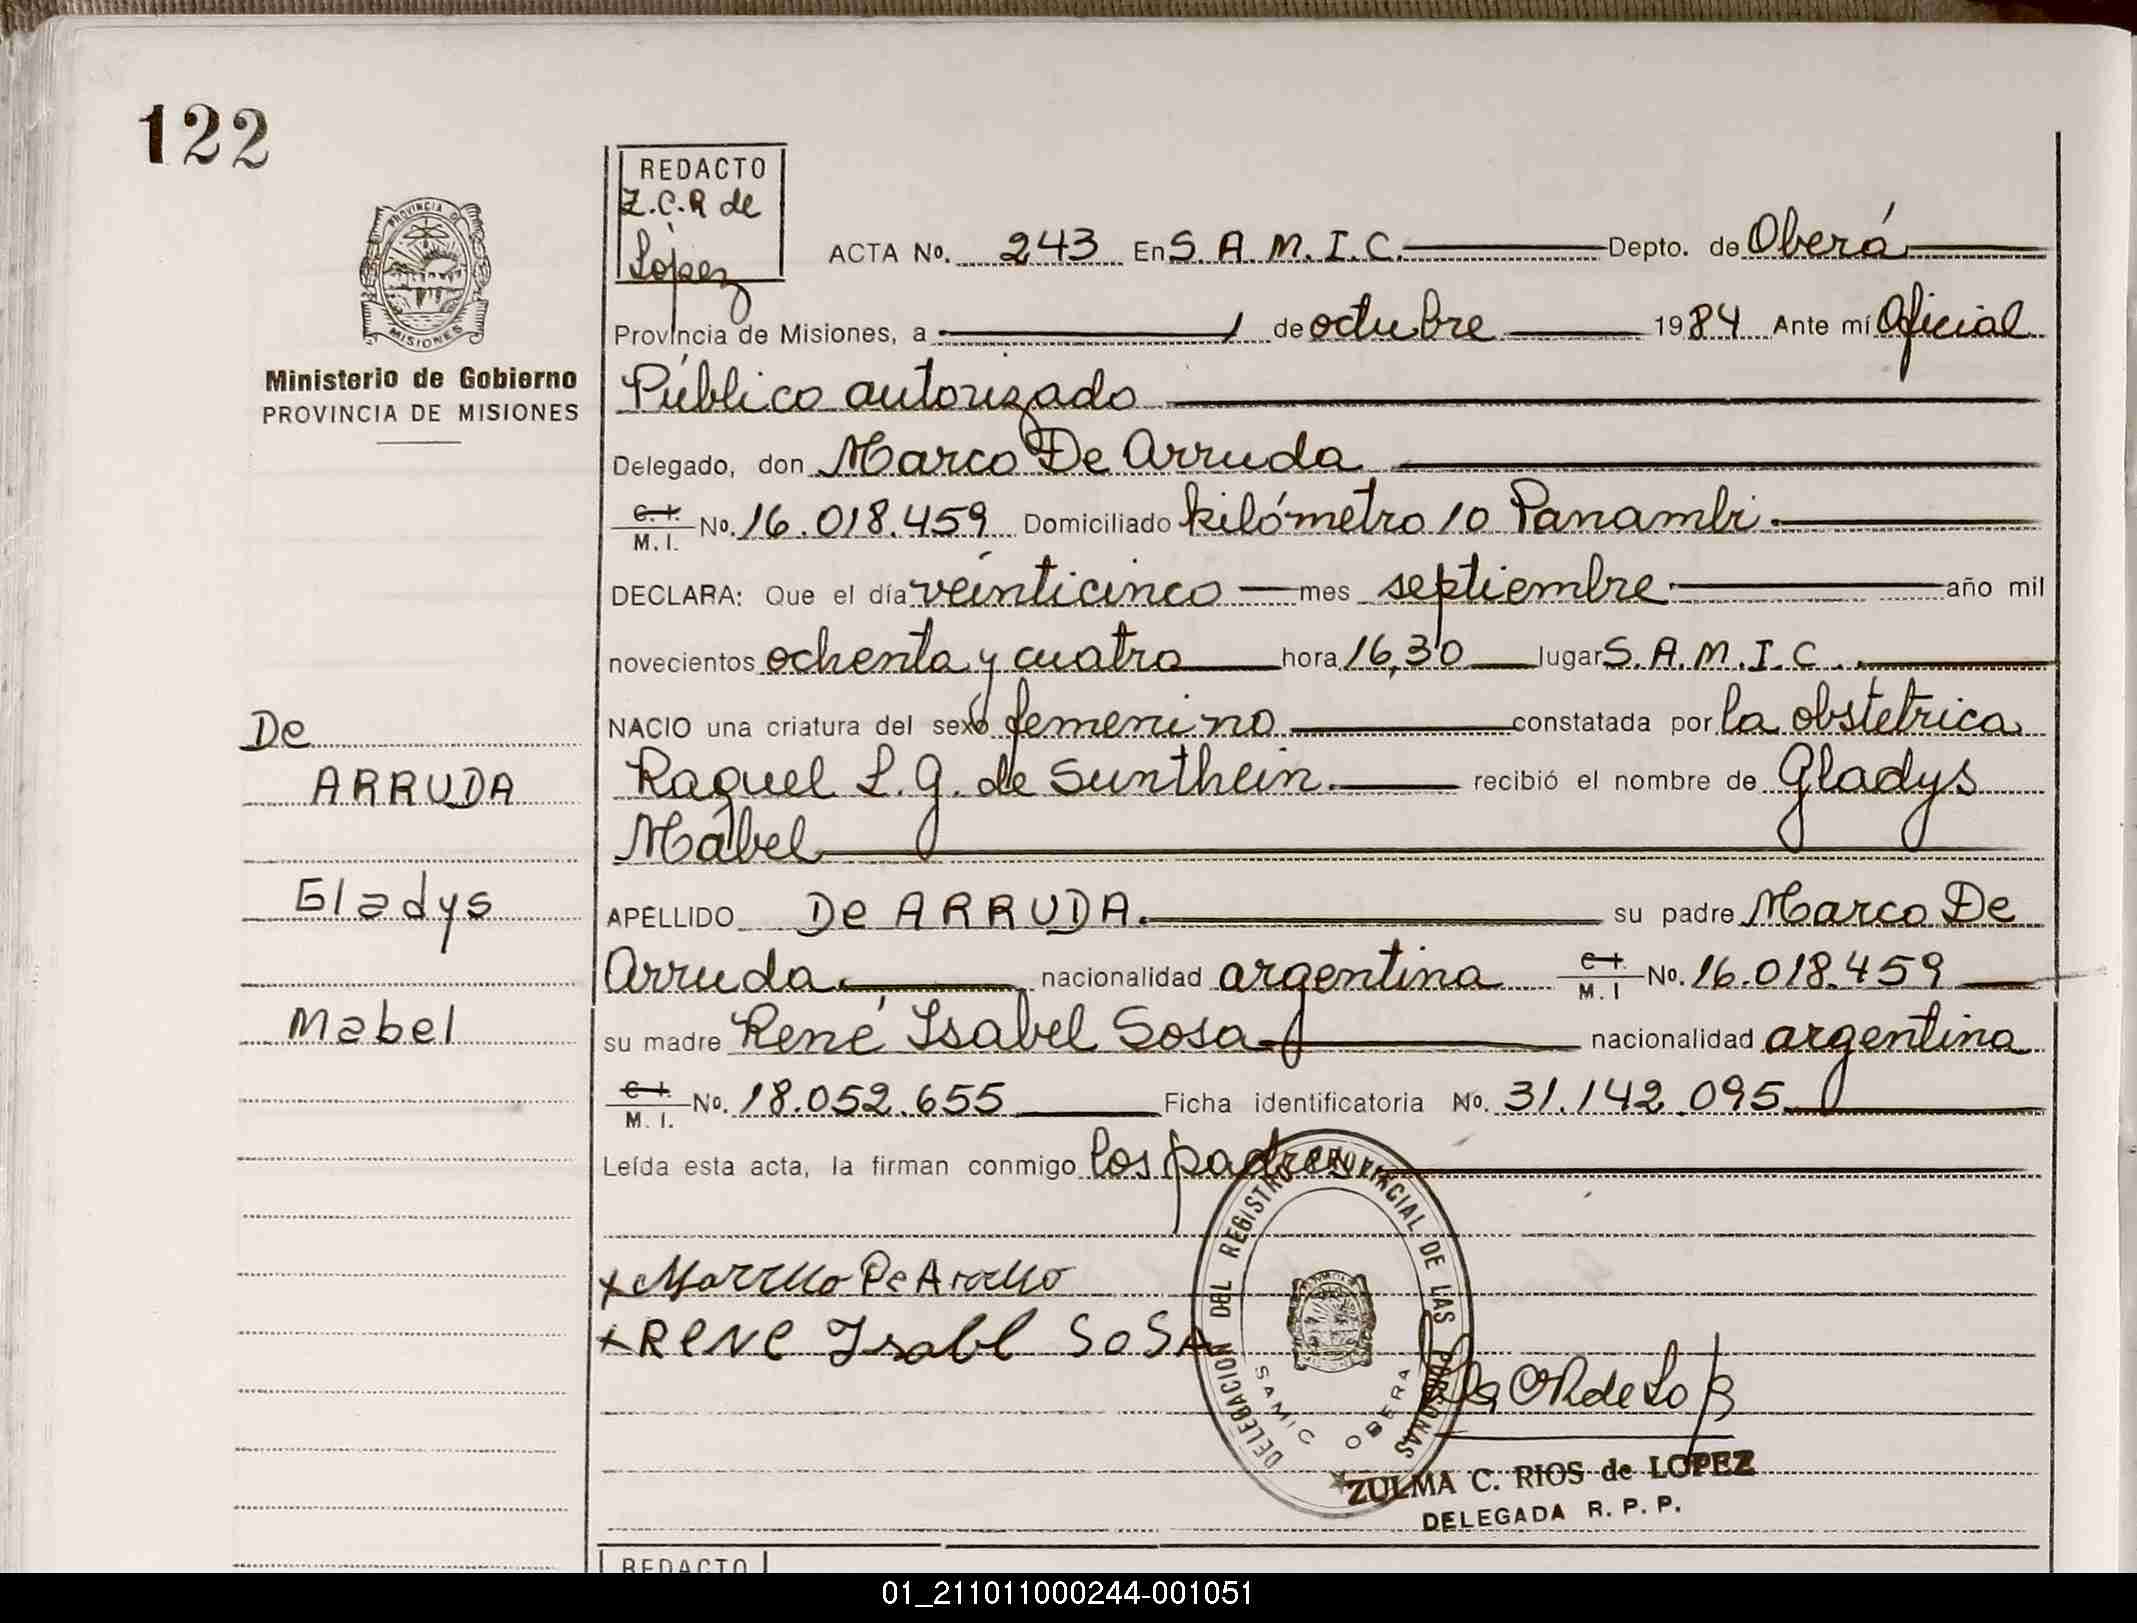 122
REDACTO
Z.C.R de
López
ACTA No. 243 En S. A. M. I. C. Depto. de Oberá
Provincia de Misiones, a 1 de octubre 1984 Ante mí Oficial
Público autorizado
Delegado, don Marco De Arruda
C. I. M. I. No. 16.018.459 Domiciliado kilómetro 10 Panambi.
DECLARA: Que el día veinticinco mes septiembre año mil
novecientos ochenta y cuatro hora 16,30 lugar S. A. M. I. C.
NACIO una criatura del sexo femenino constatada por la obstetrica
Raquel L. G. de Sunthein. recibió el nombre de Gladys
Mabel
APELLIDO De ARRUDA. su padre Marco De
Arruda nacionalidad argentina C I. M. I No. 16.018.459
su madre René Isabel Sosa nacionalidad argentina
C I. M. I. No. 18.052.655 Ficha identificatoria No. 31.142.095
Leída esta acta, la firman conmigo los padres
x De
x RENE Isabl SOSA
PROVINCIA DE
MISIONES
Ministerio de Gobierno
PROVINCIA DE MISIONES
De
ARRUDA
Gladys
Mabel
DELEGACION DEL REGISTRO PROVINCIAL DE LAS PERSONAS
SAMIC OBERA
ZULMA C. RIOS de LOPEZ
DELEGADA R. P. P.
REDACTO
01_211011000244-001051